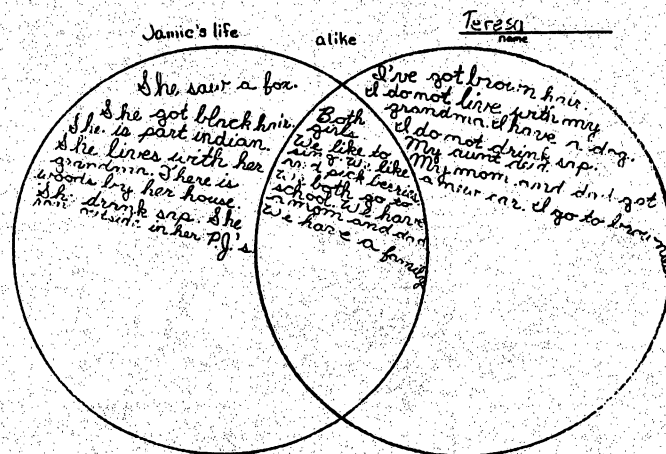 Jamie's life
alike
Teresa
name
She saw a fox.
She got blck hair.
She is part indian.
She lives with her
grandma. There is
woods by her house.
She drink sap. She
outside in her P.J.'s
Both
girls
We like to
sing We like
pick berries
We both go to
school. We have
a mom and dad
We have a family
I've got brown hair.
I do not live with my
grandma. I have a dog.
I do not drink sap.
My aunt did.
My mom and dad got
a new car. I go to